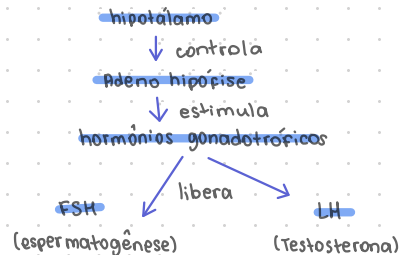 hipotálamo
controla
Adeno hipófise
estimula
hormônios gonadotróficos
libera
FSH
LH
(espermatogênese)
(Testosterona)